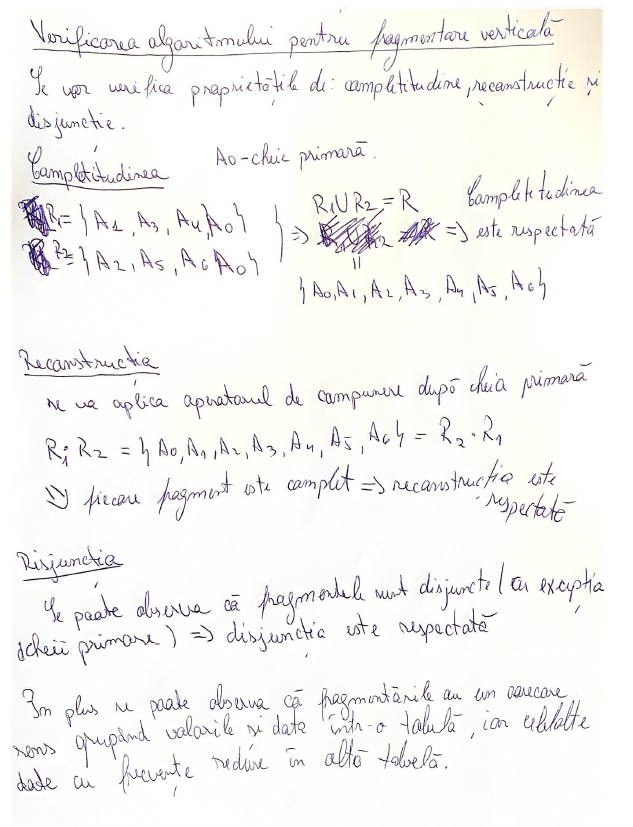 Verificarea algoritmului pentru fragmentare verticală
Se vor verifica proprietățile de: completitudine, reconstructie și
disjunctie.
Completitudinea A0-cheie primară.
R1 = { A1, A3, A4, A0 } R1 U R2 = R Completitudinea
R2 = { A2, A5, A6 A0 } => => este respectată
{ A0, A1, A2, A3, A4, A5, A6 }
Reconstructia
se va aplica operatorul de compunere după cheia primară
R1 · R2 = { A0, A1, A2, A3, A4, A5, A6 } = R2 · R1
=> fiecare fragment este complet => reconstrucția este
respectată
Disjunctia
Se poate observa că fragmentele sunt disjuncte (cu excepția
cheii primare) => disjuncția este respectată
În plus se poate observa că fragmentările au un oarecare
sens grupând valorile și date într-o tabelă, iar celelalte
date cu frecvențe reduse în altă tabelă.